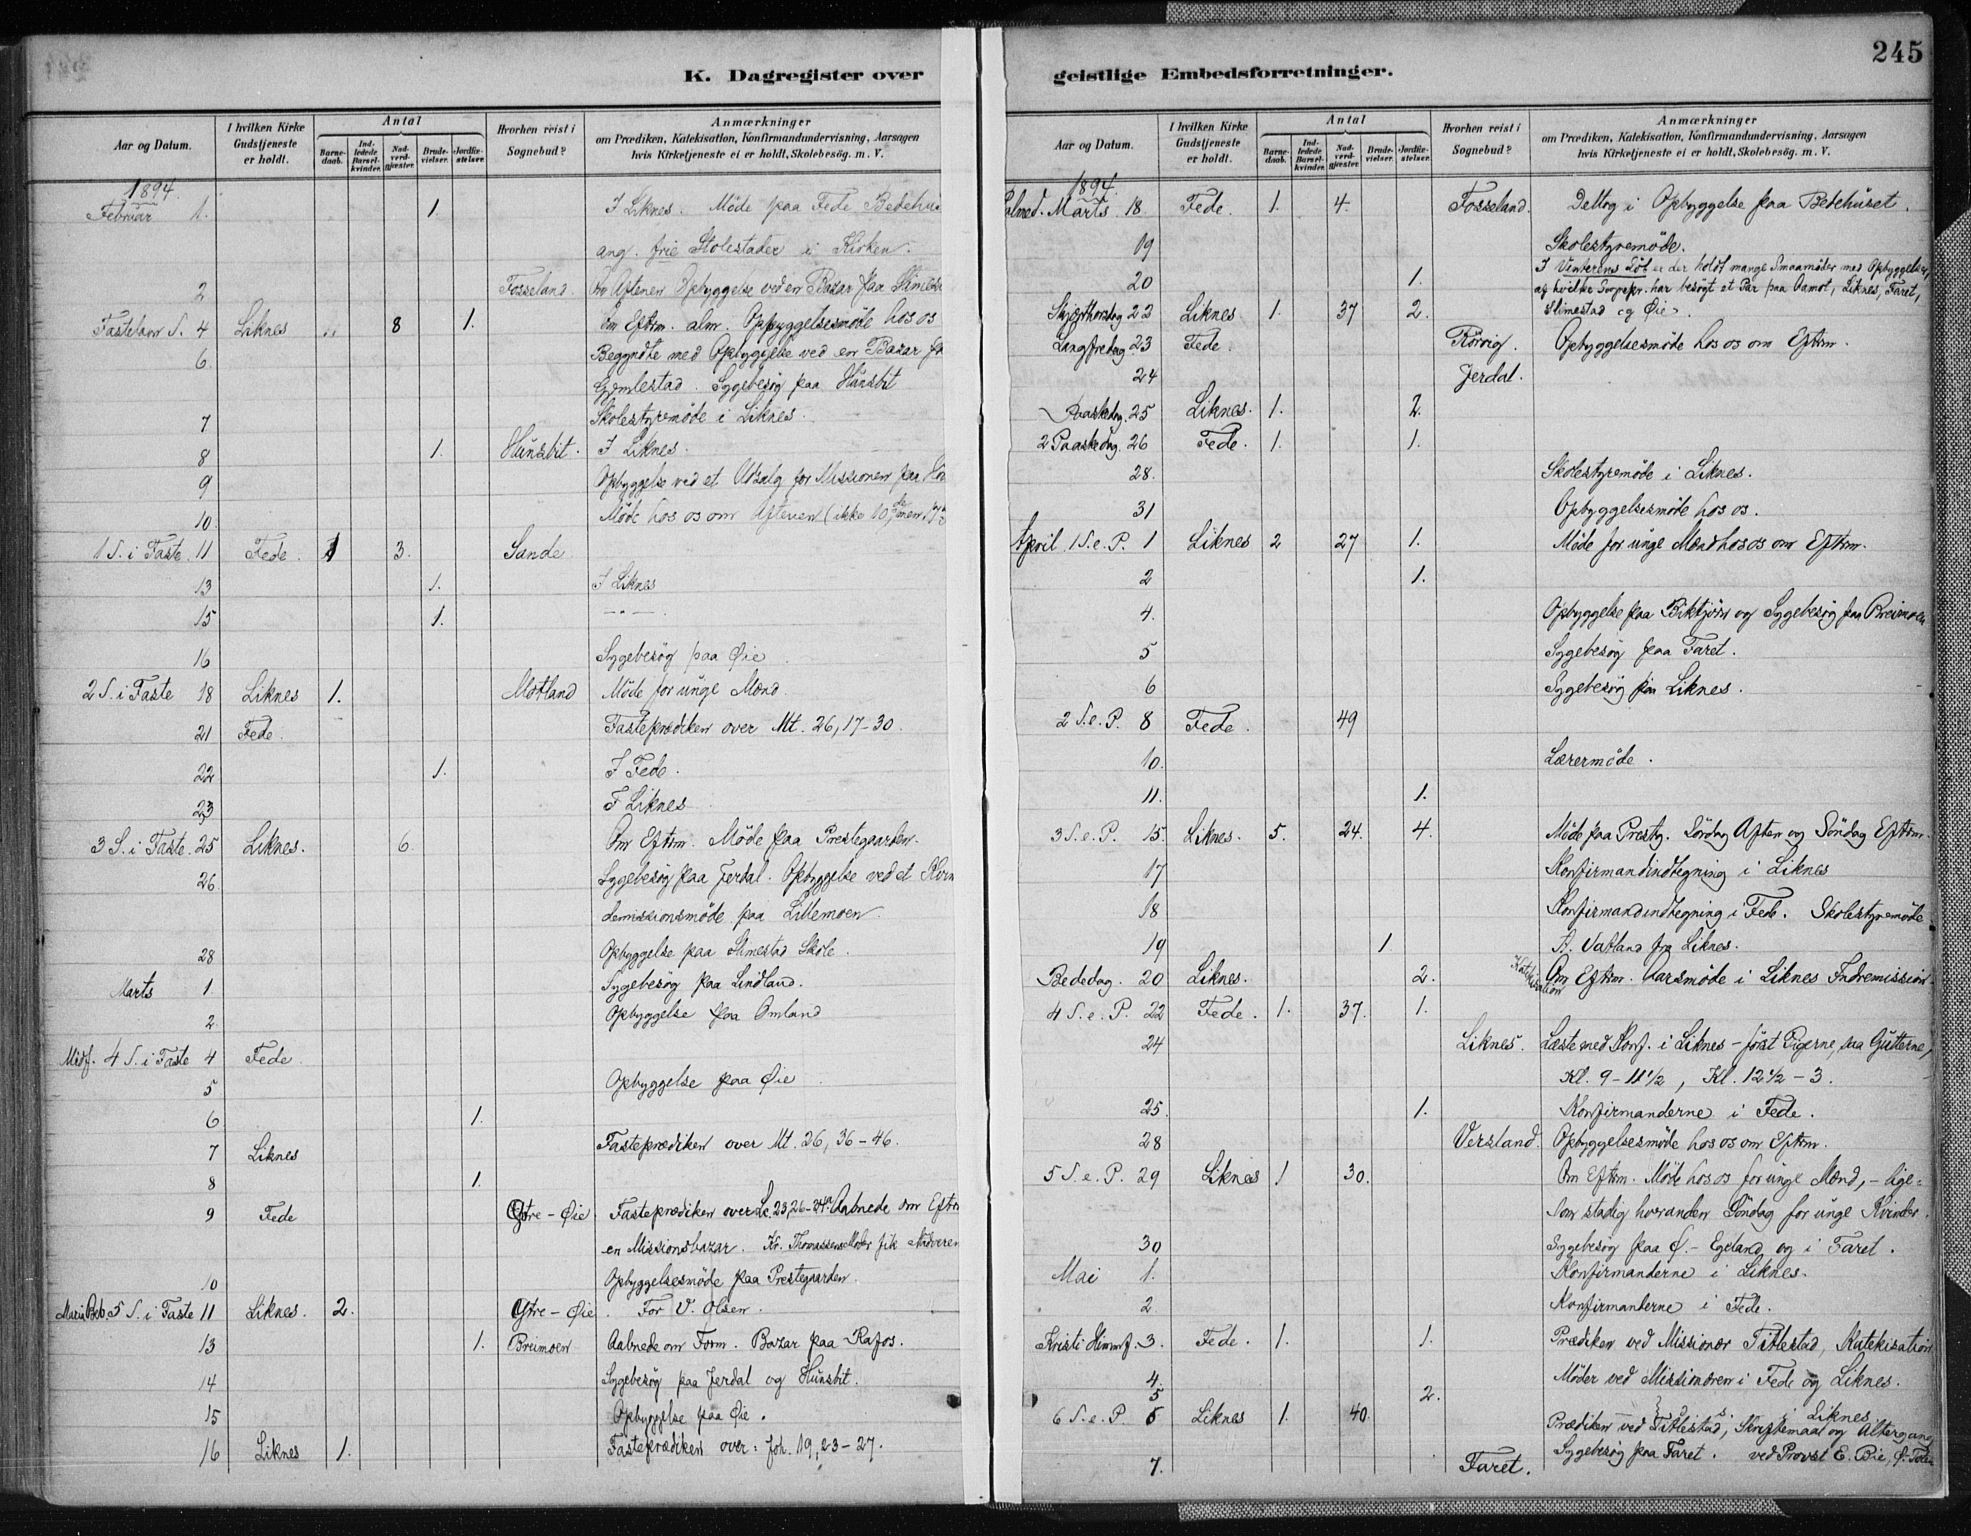 245
K. Dagregister over geistlige Embedsforretninger.
Aar og Datum. I hvilken Kirke Gudstjeneste er holdt. Antal Barne-daab. Ind-ledede Barsel-kvinder. Nad-verd-gjæster. Brude-vielser. Jordfæ-stelser. Hvorhen reist i Sognebud? Anmærkninger om Prædiken, Katekisation, Konfirmandundervisning, Aarsagen hvis Kirketjeneste ei er holdt, Skolebesøg. m. V.
1894.
Februar 1. 1. I Liknes. Møde paa Fede Bedehus
ang. frie Stolestader i Kirken.
2 Fosseland. Om Aftenen Opbyggelse ved en Bazar paa
Fastelavn S. 4 Liknes 8 1. Om Eftrm. alm. Opbyggelsesmøde hos os
6. Begyndte med Opbyggelse ved en Bazar
Gjemlestad. Sygebesøg paa Hunsbit
7 Skolestyremøde i Liknes.
8 1. Hunsbit. I Liknes.
9 Opbyggelse ved et Udsalg for Missionen paa
10 Møde hos os om Aftenen (ikke 10de, men
1 S. i Faste. 11 Fede. 1 3. Sande
13 1. I Liknes
15 1. — " —
16 Sygebesøg paa Øie
2 S. i Faste 18 Liknes 1. Motland Møde for unge Mænd.
21 Fede. Fasteprædiken over Mt. 26, 17-30.
22 1. I Fede.
23 I Liknes
3 S. i Faste. 25 Liknes. 6 Om Eftrm. Møde paa Prestegaarden.
26 Sygebesøg paa Jerdal. Opbyggelse ved et Kvin
demissionsmøde paa Lillemoen.
28 Opbyggelse paa Slimestad Skole.
Marts 1 Sygebesøg paa Lindland.
2 Opbyggelse paa Omland
Midf. 4 S. i Faste 4 Fede
5 Opbyggelse paa Øie
6 1.
7 Liknes Fasteprædiken over Mt. 26, 36-46.
8 1.
9 Fede Øtre-Øie. Fasteprædiken over Lc. 23, 26- Aabnede om Eftrm
en Missionsbazar. Kr. Thomassens Moder fik Nadveren
10 Opbyggelsesmøde paa Prestegaarden.
Mariæ Beb. 5 S. i Faste 11 Liknes. 2. Øtre-Øie. For V. Olsen.
13 1. Breimoen Aabnede om Form. Bazar paa Rafos.
14 Sygebesøg paa Jerdal og Hunsbit.
15 Opbyggelse paa Øie.
16 Liknes 1. Fasteprædiken over: Joh. 19, 23-27.
Aar og Datum. I hvilken Kirke Gudstjeneste er holdt. Antal Barne-daab. Ind-ledede Barsel-kvinder. Nad-verd-gjæster. Brude-vielser. Jordfæ-stelser. Hvorhen reist i Sognebud? Anmærkninger om Prædiken, Katekisation, Konfirmandundervisning, Aarsagen hvis Kirketjeneste ei er holdt, Skolebesøg. m. V.
1894.
Palmed. Marts 18 Fede. 1. 4. Fosseland. Deltog i Opbyggelse paa Bedehuset.
19 Skolestyremøde.
20 1. I Vinterens Løb er der holdt mange Smaamøder med Opbyggelse,
af hvilke Sognepr. har besøgt et Par paa Aamot, Liknes, Faret,
Slimestad og Øie.
Skjærthorsdag 22 Liknes 1. 37 2.
Langfredag 23 Fede. Rørvig. Opbyggelsesmøde hos os om Eftrm.
24 Jerdal.
Paaskedag. 25 Liknes. 1. 2.
2 Paaskedag. 26 Fede. 1. 1.
28. Skolestyremøde i Liknes.
31 Opbyggelsesmøde hos os.
April 1 S. e. P. 1 Liknes 2 27 1. Møde for unge Mænd hos os om Eftrm.
2 1.
4. Opbyggelse paa Biktjørn og Sygebesøg paa Breimoen
5 Sygebesøg paa Faret.
6 Sygebesøg paa Liknes.
2 S. e. P. 8 Fede. 49
10. Lærermøde.
11. 1.
3 S. e. P. 15. Liknes. 5. 24. 4. Møde paa Prestg. Lørdag Aften og Søndag Eftrm.
17 Konfirmandindtegning i Liknes
18 Konfirmandindtegning i Fede. Skolestyremøde.
19 1 A. Vatland fra Liknes.
Bededag. 20 Liknes. 2. Katekisation Om Eftrm. Aarsmøde i Liknes Indremission.
4 S. e. P. 22 Fede. 1. 37. 1.
24 Liknes. Læste med Konf. i Liknes - først Pigerne, saa Gutterne,
Kl. 9-11½, Kl. 12½-3.
25. 1. Konfirmanderne i Fede.
28 Versland. Opbyggelsesmøde hos os om Eftrm.
5 S. e. P. 29 Liknes 1 30. Om Eftrm. Møde hos os for unge Mænd, - lige=
som stadig hveranden Søndag for unge Kvinder.
30 Sygebesøg paa Ø.-Egeland og i Faret.
Mai 1. Konfirmanderne i Liknes.
2 Konfirmanderne i Fede.
Kristi Himmf. 3. Fede. 1. 1. Prædiken ved Missionær Tittlestad, Katekisation
4. Møder ved Missionæren i Fede og Liknes.
5 2. Liknes
6 S. e. P. 6 Liknes 1. 40. Prædiken ved Tittlestad, Skriftemaal og Altergang
7. Faret. Sygebesøg paa Faret. ved Provst E. Bie,